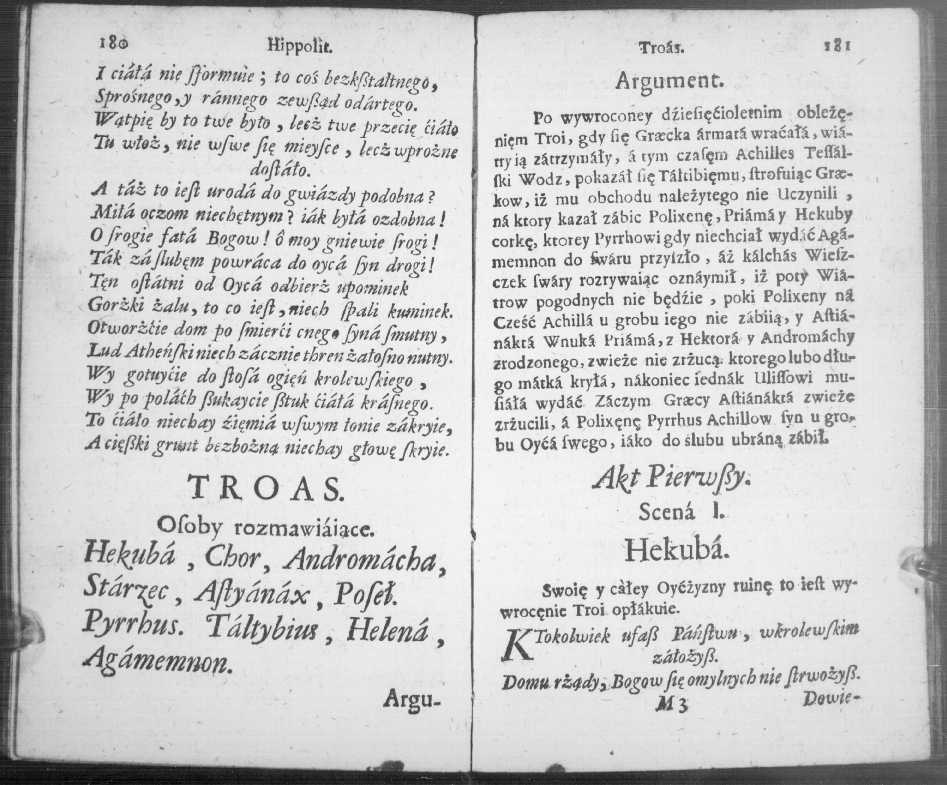 180 Hippolit.
I ćiáłá nie ſformuie ; to coś bezkßtałtnego,
Sprośnego, y ránnego zewßąd odártego.
Wątpię by to twe było , lecż twe przecię ćiáło
Tu włoż, nie wſwe ſię mieyſce , lecż wprożne
doſtáło.
A táż to ieſt urodá do gwiázdy podobna ?
Miłá oczom niechętnym ? iák byłá ozdobna !
O ſrogie fatá Bogow ! ô moy gniewie ſrogi !
Ták zá ſlubęm powráca do oycá ſyn drogi !
Tęn oſtátni od Oycá odbierż upominek
Gorżki żalu, to co ieſt, niech ſpali kuminek.
Otworżćie dom po ſmierći cnego ſyná ſmutny ,
Lud Atheńſki niech zácznie thren żałoſno nutny.
Wy gotuyćie do ſtoſá ogięń krolewſkiego ,
Wy po poláćh ßukaycie ßtuk ćiáłá kráſnego.
To ćiáło niechay źięmiá wſwym łonie zákryie,
A cięßki grunt bezbożną niechay głowę ſkryie.
TROAS.
Oſoby rozmawiáiące.
Hekubá , Chor, Andromácha,
Stárzec , Aſtyánáx , Poſeł.
Pyrrhus. Táltybius , Helená ,
Agámemnon.
Argu-
Troás. 181
Argument.
Po wywroconey dźieſięćioletnim oblężę-
nięm Troi, gdy ſię Græcka ármatá wraćáłá, wiá-
try ią zátrzymáły, á tym czaſęm Achilles Teſſál-
ſki Wodz, pokazáł ſię Táltibięmu, ſtrofuiąc Græ-
kow, iż mu obchodu należytego nie Uczynili ,
ná ktory kazał zábic Polixenę, Priámá y Hekuby
corkę, ktorey Pyrrhowi gdy niechciał wydáć Agá-
memnon do ſwáru przyſzło , áż kálchás Wieſz-
czek ſwáry rozrywaiąc oznáymił, iż poty Wiá-
trow pogodnych nie będźie , poki Polixeny ná
Cześć Achillá u grobu iego nie zábiią, y Aſtiá-
náktrá Wnuká Priámá, z Hektorá y Andromáchy
zrodzonego, zwieże nie zrżucą. ktorego lubo dłu-
go mátká kryłá, nákoniec iednák Uliſſowi mu-
ſiáłá wydáć. Záczym Græcy Aſtiánáktrá zwieże
zrżucili, á Polixęnę Pyrrhus Achillow ſyn u gro-
bu Oyćá ſwego, iáko do ślubu ubráną zábił.
Akt Pierwßy.
Scená I.
Hekubá.
Swoię y cáłey Oyćżyzny ruinę to ieſt wy-
wrocęnie Troi opłákuie.
KTokolwiek ufaß Páńſtwu , wkrolewſkim
záłożyß.
Domu rżądy, Bogow ſię omylnych nie ſtrwożyß.
M 3 Dowie-